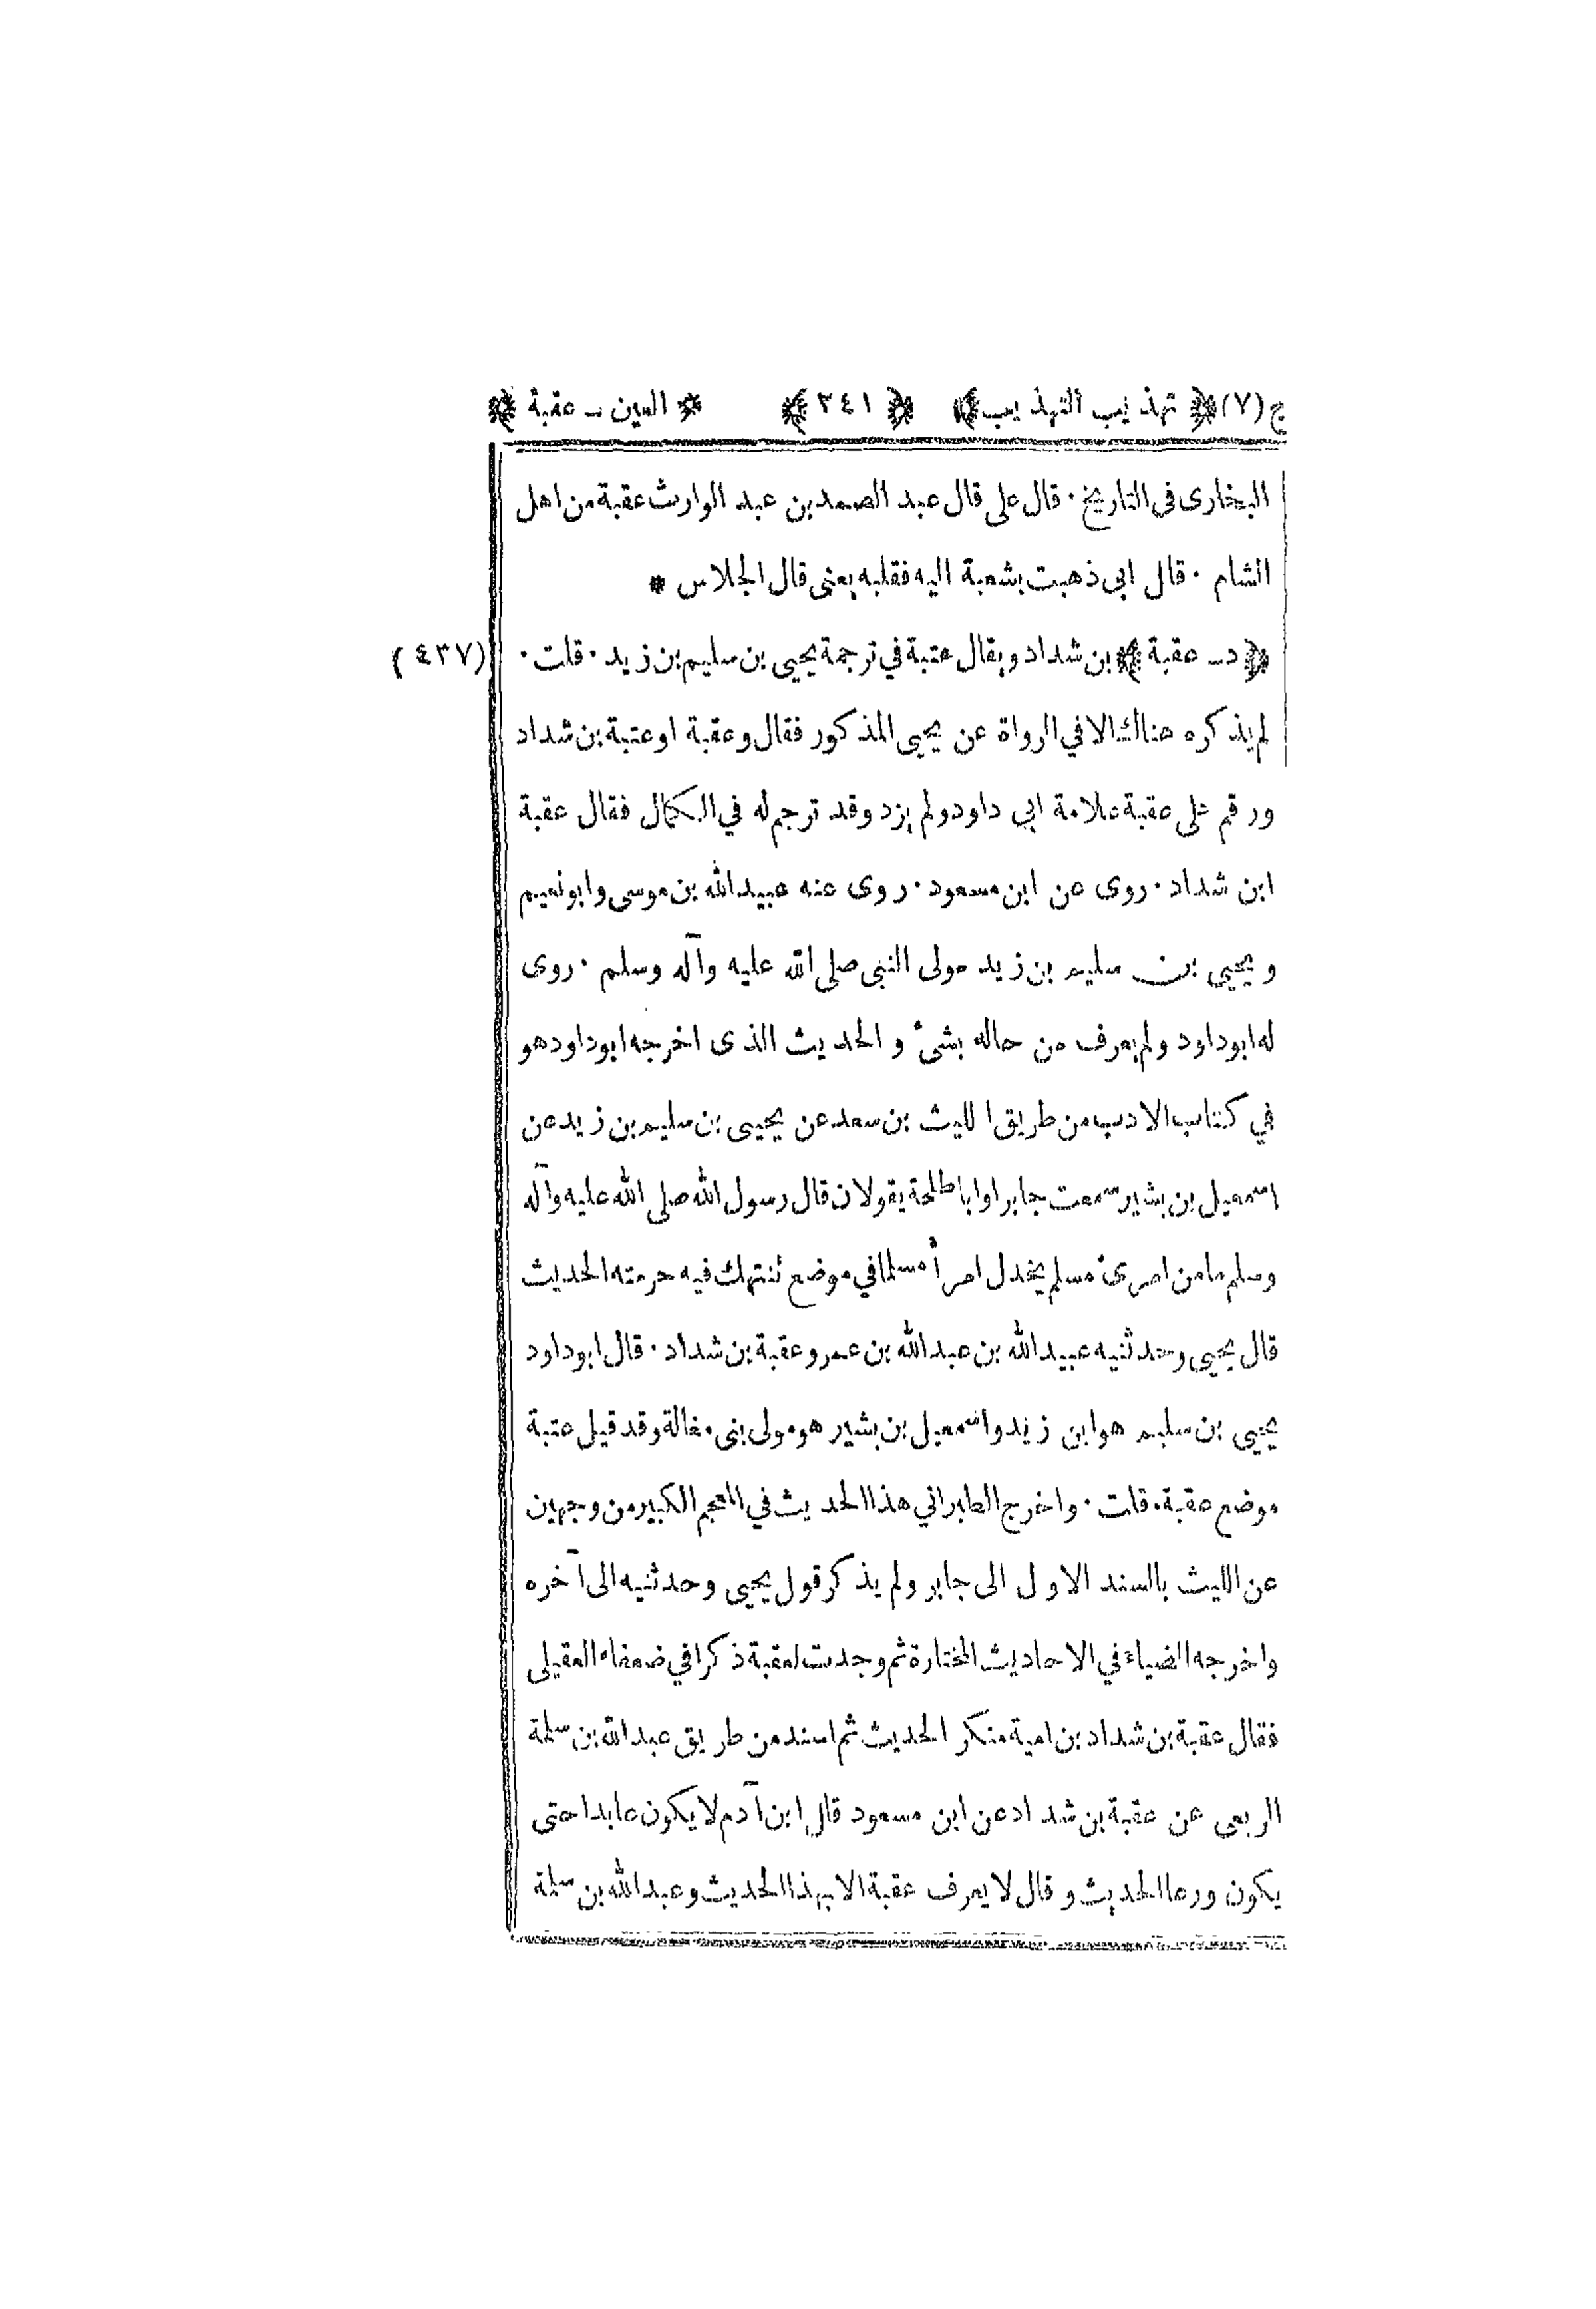 ج (٧) ﴿ تهذيب التهذيب ﴾ ﴿ ٢٤١ ﴾ ﴿ العين ــ عقبة ﴾
البخارى فى التاريخ · قال على قال عبد الصمد بن عبد الوارث عقبة من اهل
الشام · قال ابى ذهبت بشعبة اليه فقلبه يعنى قال الجلاس *
﴿ د ــ عقبة ﴾ بن شداد ويقال عتبة في ترجمة يحيى بن سليم بن زيد · قلت · (٤٣٧)
لم يذكره هناك الا في الرواة عن يحيى المذكور فقال وعقبة او عتبة بن شداد
ورقم على عقبة علامة ابي داود ولم يزد وقد ترجم له في الكمال فقال عقبة
ابن شداد · روى عن ابن مسعود · روى عنه عبيد الله بن موسى وابو نعيم
ويحيى بن سليم بن زيد مولى النبى صلى الله عليه وآله وسلم · روى
له ابو داود ولم يعرف من حاله بشىء والحديث الذى اخرجه ابو داود هو
في كتاب الادب من طريق الليث بن سعد عن يحيى بن سليم بن زيد عن
اسمعيل بن بشير سمعت جابرا وابا طلحة يقولان قال رسول الله صلى الله عليه وآله
وسلم ما من امرىء مسلم يخذل امرأ مسلما في موضع تنتهك فيه حرمته الحديث
قال يحيى وحدثنيه عبيد الله بن عبد الله بن عمر وعقبة بن شداد · قال ابو داود
يحيى بن سليم هو ابن زيد واسمعيل بن بشير هو مولى بنى مغالة وقد قيل عتبة
موضع عقبة · قلت · واخرج الطبراني هذا الحديث في المعجم الكبير من وجهين
عن الليث بالسند الاول الى جابر ولم يذكر قول يحيى وحدثنيه الى آخره
واخرجه الضياء في الاحاديث المختارة ثم وجدت لعقبة ذكرا في ضعفاء العقيلى
فقال عقبة بن شداد بن امية منكر الحديث ثم اسند من طريق عبد الله بن سلمة
الربعى عن عقبة بن شداد عن ابن مسعود قال ابن آدم لا يكون عابدا حتى
يكون ورعا الحديث وقال لا يعرف عقبة الا بهذا الحديث وعبد الله بن سلمة